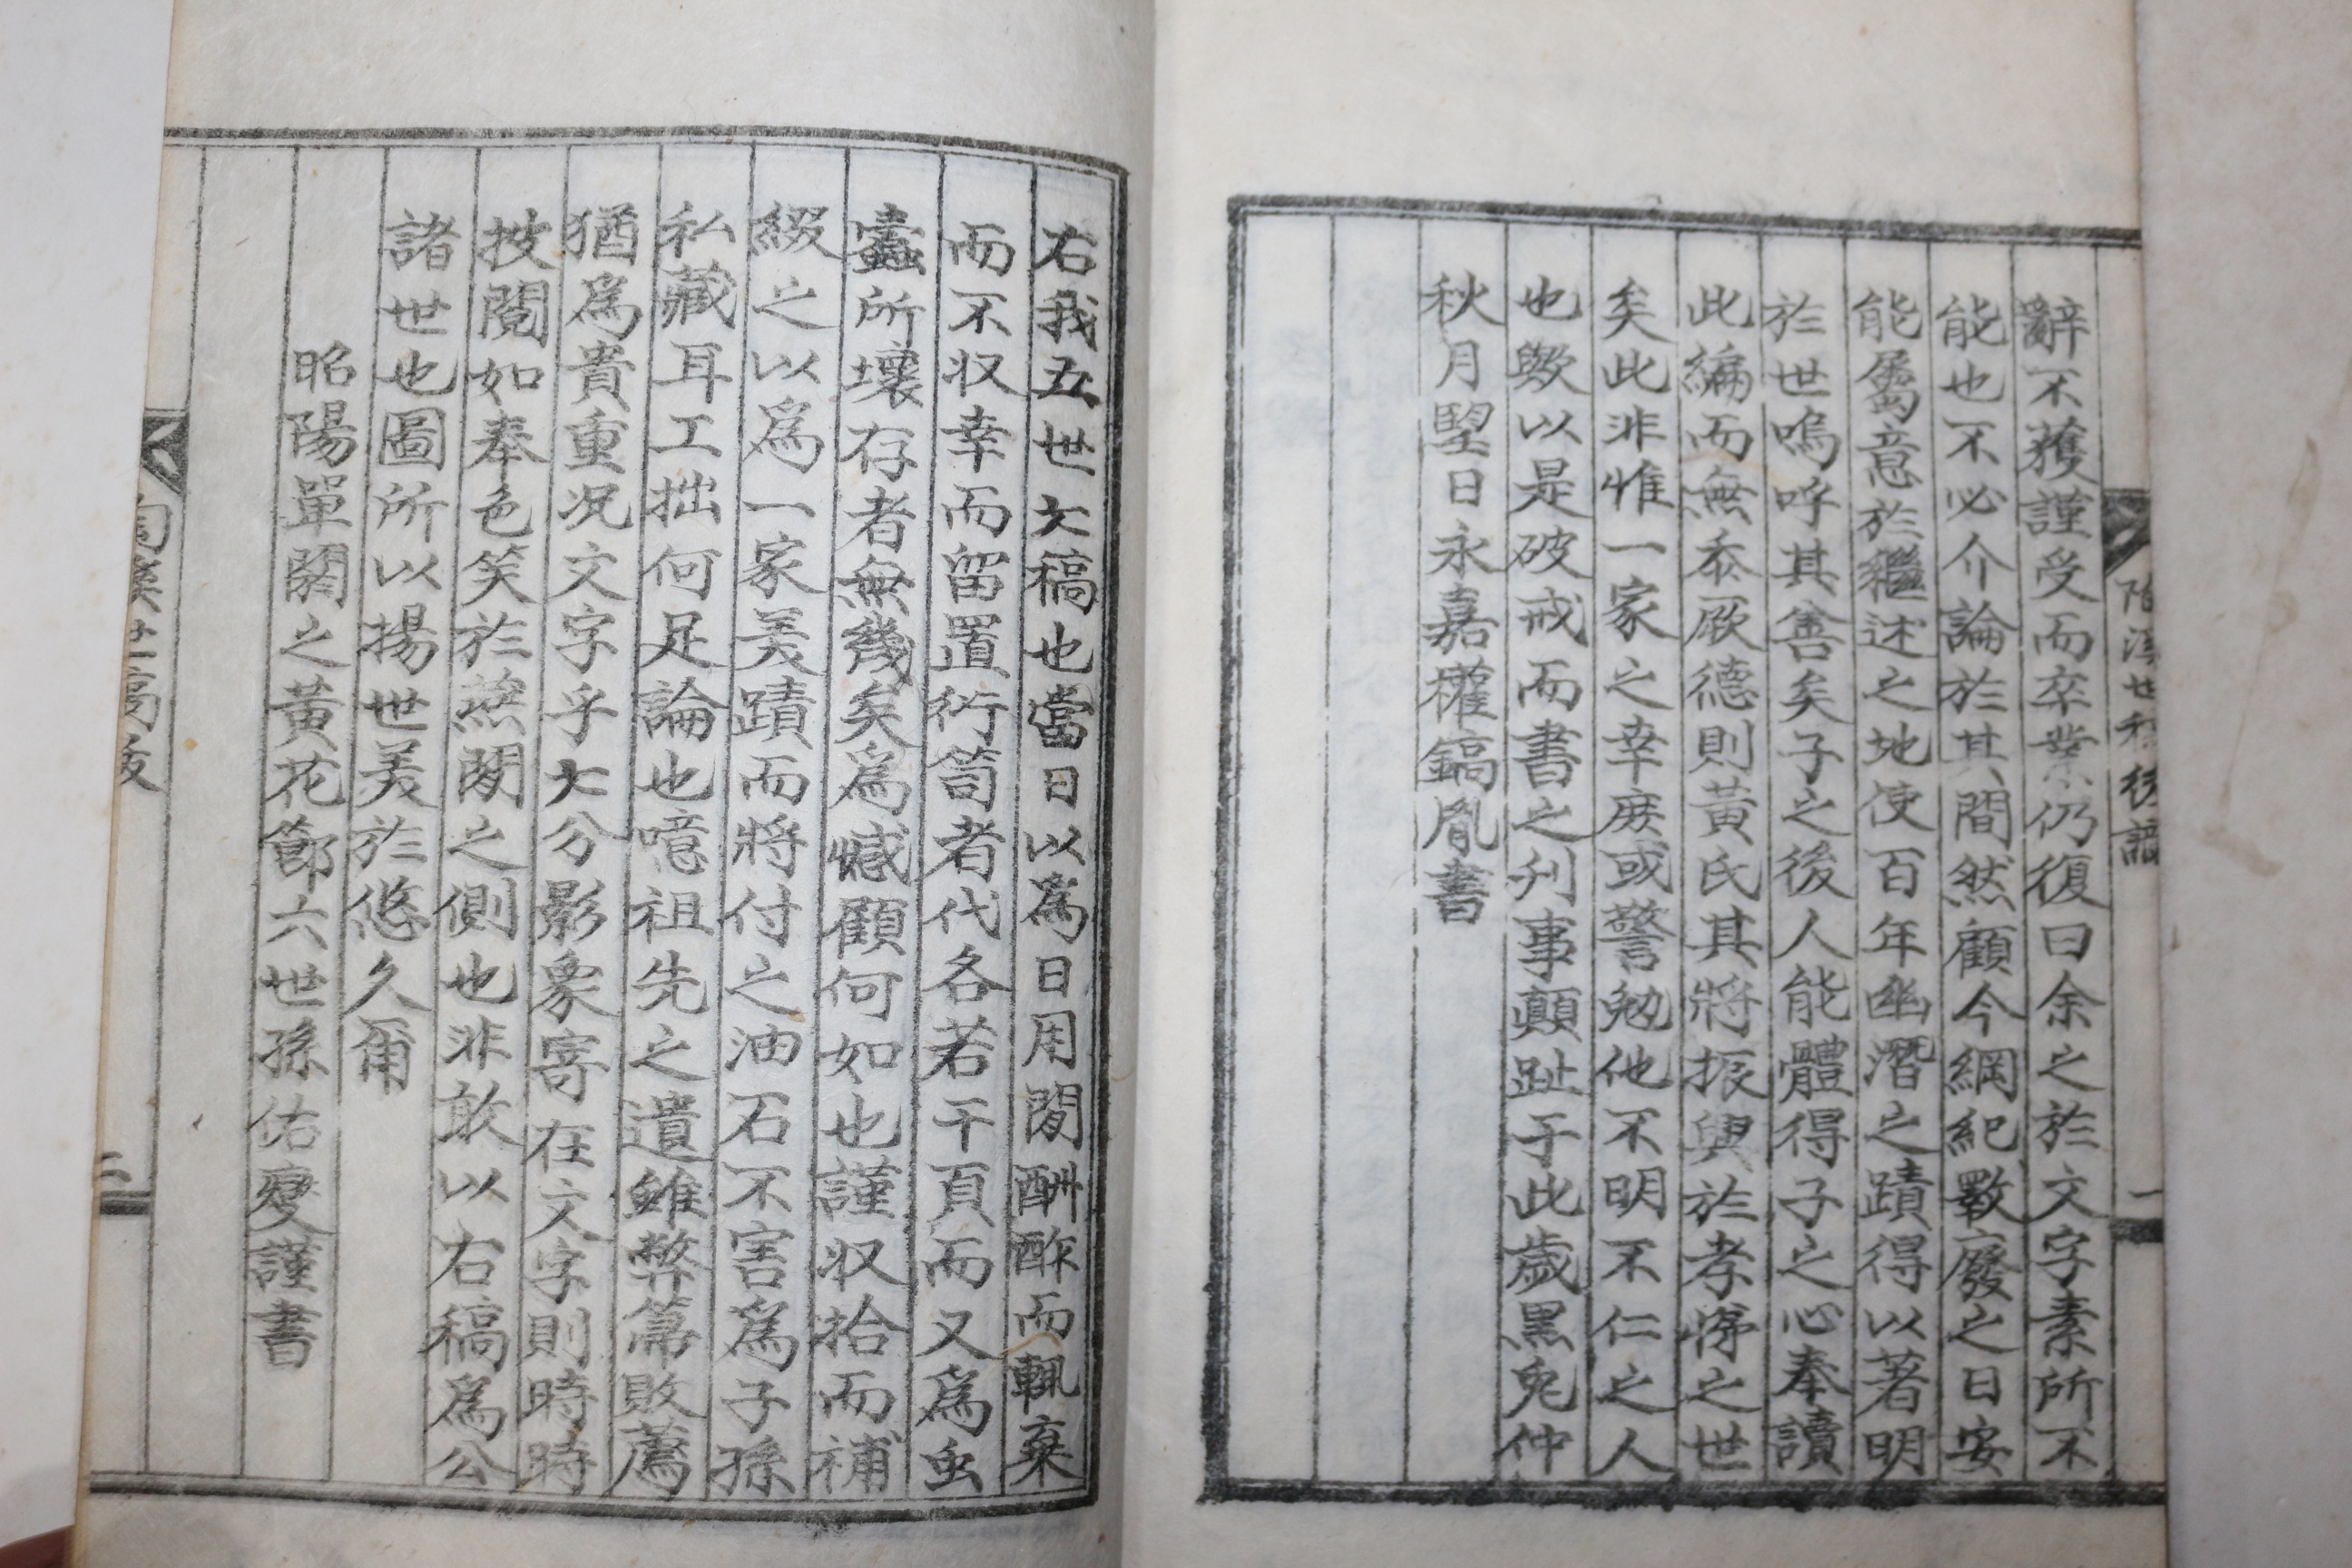 陶溪世稿後識
一
辭不獲謹受而卒業仍復曰余之於文字素所不
能也不必介論於其間然顧今綱紀斁廢之日安
能屬意於繼述之地使百年幽潛之蹟得以著明
於世嗚呼其善矣子之後人能體得子之心奉讀
此編而無忝厥德則黃氏其將振興於孝悌之世
矣此非惟一家之幸庶或警勉他不明不仁之人
也歟以是破戒而書之刋事顛趾于此歲黑兎仲
秋月望日永嘉權鎬胤書
右我五世大稿也當日以爲日用閒酬酢而輒棄
而不収幸而留置衍笥者代各若干頁而又爲虫
蠹所壞存者無幾矣爲憾顧何如也謹収拾而補
綴之以爲一家美蹟而將付之油石不害爲子孫
私藏耳工拙何足論也噫祖先之遺雖弊帚敗薦
猶爲貴重况文字乎大分影象寄在文字則時時
披閱如奉色笑於燕閒之側也非敢以右稿爲公
諸世也圖所以揚世美於悠久爾
昭陽單閼之黃花節六世孫佑燮謹書
陶溪世稿跋
二